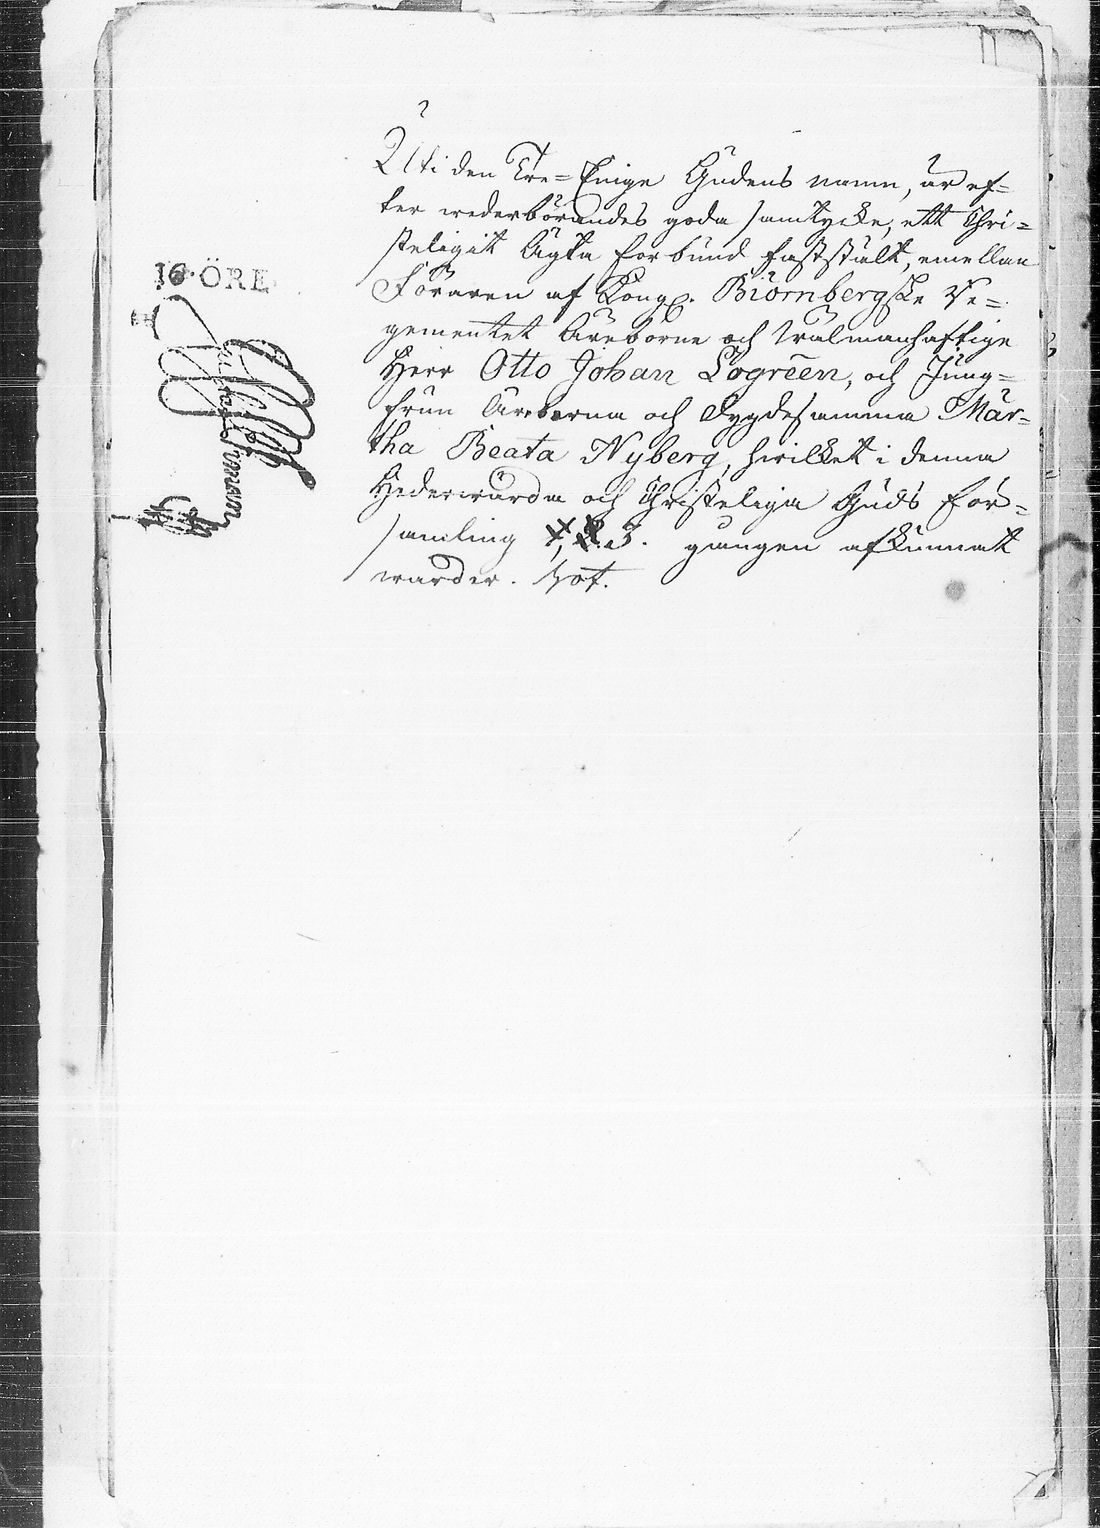 16·ÖRE
Uti den Tre=Enige Gudens namn, är ef=
ter wederbörandes goda samtycke, ett Chri=
steligit Ägta forbund faststält, emellan
Föraren af Kongl. Biörnbergske Re=
gementet Äreborne och Wälmanhaftige
Herr Otto Johan Logreen, och Jung=
frun Äreborna och Dygdesamma Mär=
tha Beata Nyberg, hwilket i denna
Hederwärda och Christeliga Guds för=
samling 1, 2. 3. gången afkunnat
warder.